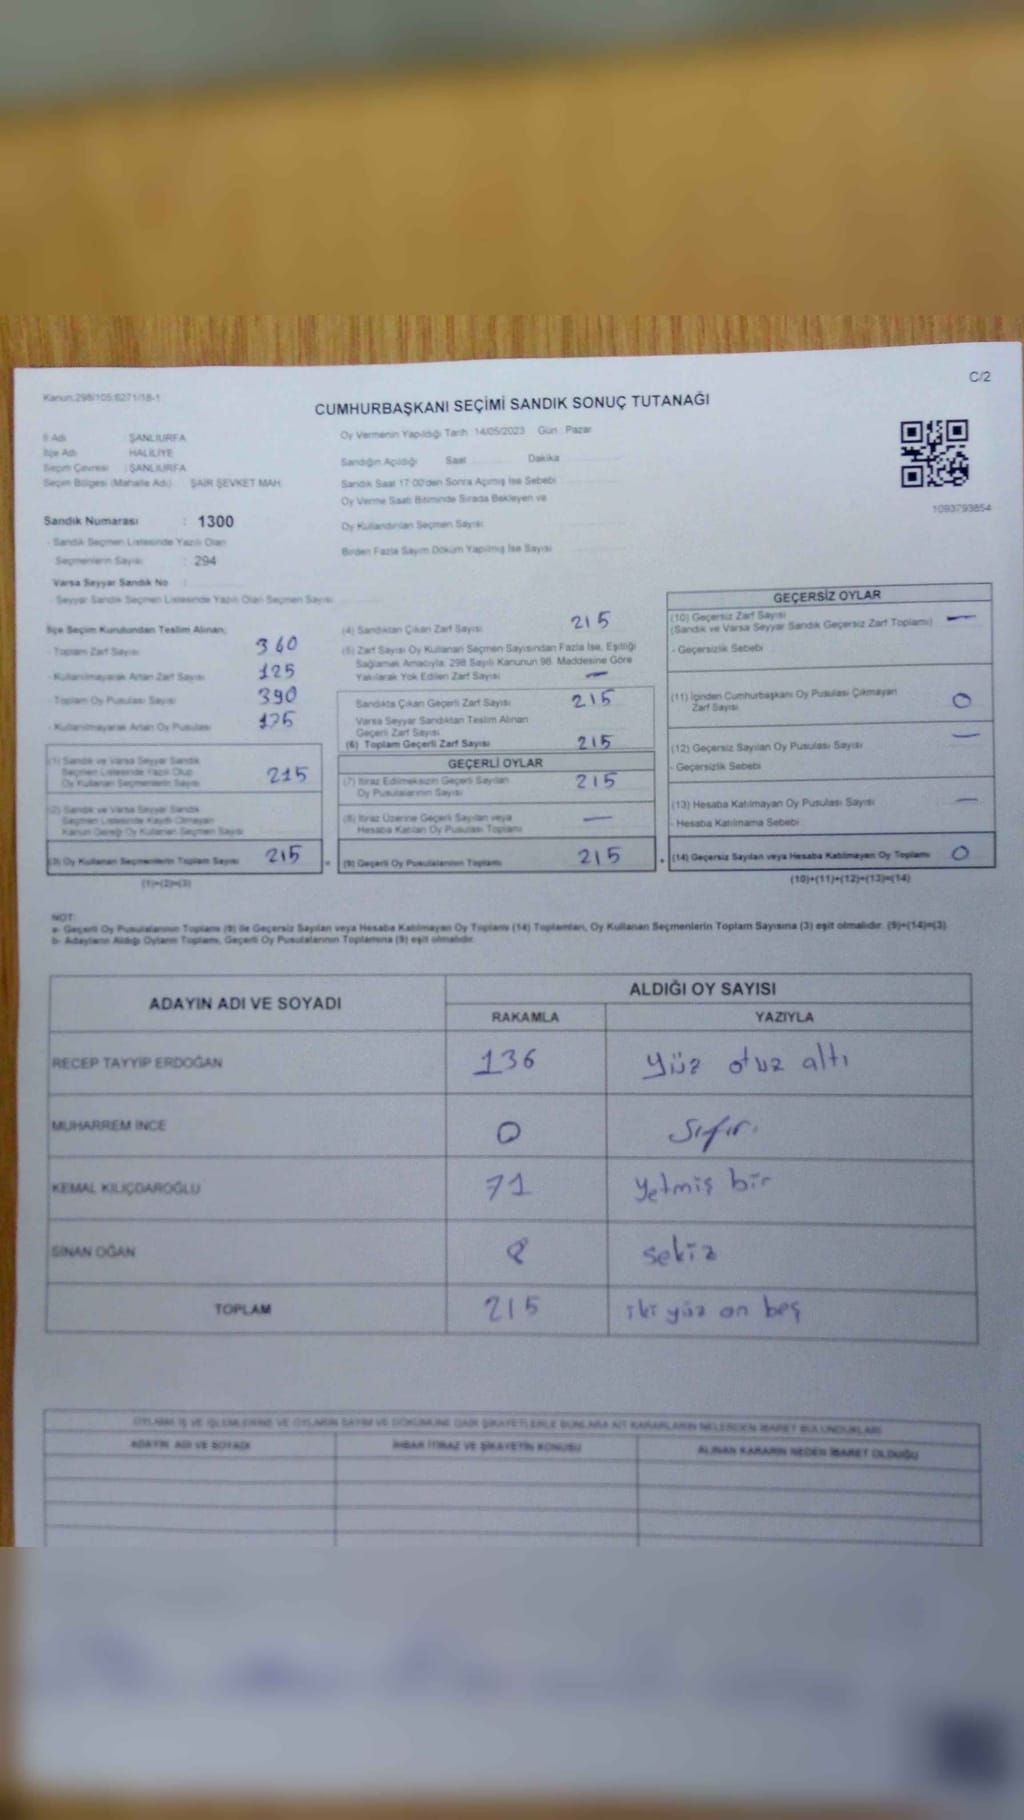 C/2
Kanun:298/105:6271/18-1
CUMHURBAŞKANI SEÇİMİ SANDIK SONUÇ TUTANAĞI
İl Adı : ŞANLIURFA
İlçe Adı HALİLİYE
Seçim Çevresi : ŞANLIURFA
Seçim Bölgesi (Mahalle Adı) ŞAİR ŞEVKET MAH.
Sandık Numarası : 1300
- Sandık Seçmen Listesinde Yazılı Olan
Seçmenlerin Sayısı : 294
Varsa Seyyar Sandık No :
- Seyyar Sandık Seçmen Listesinde Yazılı Olan Seçmen Sayısı
Oy Vermenin Yapıldığı Tarih :14/05/2023 Gün : Pazar
Sandığın Açıldığı Saat Dakika
Sandık Saat 17:00'den Sonra Açılmış İse Sebebi
Oy Verme Saati Bitiminde Sırada Bekleyen ve
Oy Kullandırılan Seçmen Sayısı
Birden Fazla Sayım Döküm Yapılmış İse Sayısı
1093793854
İlçe Seçim Kurulundan Teslim Alınan;
- Toplam Zarf Sayısı 360
- Kullanılmayarak Artan Zarf Sayısı
- Toplam Oy Pusulası Sayısı 390
- Kullanılmayarak Artan Oy Pusulası 175
(1) Sandık ve Varsa Seyyar Sandık
Seçmen Listesinde Yazılı Olup
Oy Kullanan Seçmenlerin Sayısı 215
(2) Sandık ve Varsa Seyyar Sandık
Seçmen Listesinde Kayıtlı Olmayan
Kanun Gereği Oy Kullanan Seçmen Sayısı
(3) Oy Kullanan Seçmenlerin Toplam Sayısı 215
(1)+(2)=(3)
(4) Sandıktan Çıkan Zarf Sayısı 215
(5) Zarf Sayısı Oy Kullanan Seçmen Sayısından Fazla İse, Eşitliği
Sağlamak Amacıyla, 298 Sayılı Kanunun 98. Maddesine Göre
Yakılarak Yok Edilen Zarf Sayısı —
Sandıkta Çıkan Geçerli Zarf Sayısı 215
Varsa Seyyar Sandıktan Teslim Alınan
Geçerli Zarf Sayısı
(6) Toplam Geçerli Zarf Sayısı 215
GEÇERLİ OYLAR
(7) İtiraz Edilmeksizin Geçerli Sayılan
Oy Pusulalarının Sayısı 215
(8) İtiraz Üzerine Geçerli Sayılan veya
Hesaba Katılan Oy Pusulası Toplamı —
(9) Geçerli Oy Pusulalarının Toplamı 215
GEÇERSİZ OYLAR
(10) Geçersiz Zarf Sayısı
(Sandık ve Varsa Seyyar Sandık Geçersiz Zarf Toplamı) —
- Geçersizlik Sebebi
(11) İçinden Cumhurbaşkanı Oy Pusulası Çıkmayan
Zarf Sayısı 0
(12) Geçersiz Sayılan Oy Pusulası Sayısı —
- Geçersizlik Sebebi
(13) Hesaba Katılmayan Oy Pusulası Sayısı —
- Hesaba Katılmama Sebebi
(14) Geçersiz Sayılan veya Hesaba Katılmayan Oy Toplamı 0
(10)+(11)+(12)+(13)=(14)
NOT:
a- Geçerli Oy Pusulalarının Toplamı (9) ile Geçersiz Sayılan veya Hesaba Katılmayan Oy Toplamı (14) Toplamları, Oy Kullanan Seçmenlerin Toplam Sayısına (3) eşit olmalıdır. (9)+(14)=(3)
b- Adayların Aldığı Oyların Toplamı, Geçerli Oy Pusulalarının Toplamına (9) eşit olmalıdır.
ADAYIN ADI VE SOYADI ALDIĞI OY SAYISI
RAKAMLA YAZIYLA
RECEP TAYYİP ERDOĞAN 136 yüz otuz altı
MUHARREM İNCE 0 Sıfır.
KEMAL KILIÇDAROĞLU 71 yetmiş bir
SİNAN OĞAN 8 sekiz
TOPLAM 215 iki yüz on beş
OYLAMA İŞ VE İŞLEMLERİNE VE OYLARIN SAYIM VE DÖKÜMÜNE DAİR ŞİKAYETLERLE BUNLARA AİT KARARLARIN NELERDEN İBARET BULUNDUKLARI
ADAYIN ADI VE SOYADI İHBAR İTİRAZ VE ŞİKAYETİN KONUSU ALINAN KARARIN NEDEN İBARET OLDUĞU